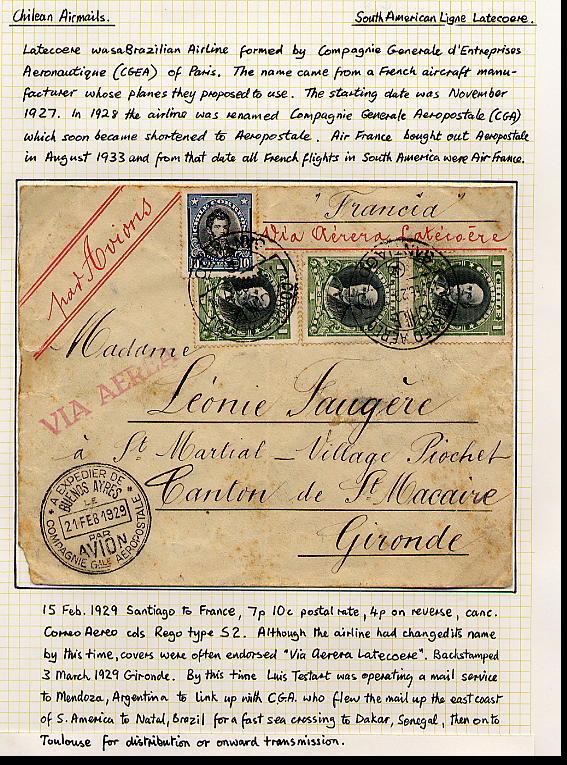 Chilean Airmails.
South American Ligne Latecoere.
Latecoere was a Brazilian Airline formed by Compagnie Generale d'Entreprises
Aeronautique (CGEA) of Paris. The name came from a French aircraft manu-
facturer whose planes they proposed to use. The starting date was November
1927. In 1928 the airline was renamed Compagnie Generale Aeropostale (CGA)
which soon became shortened to Aeropostale. Air France bought out Aeropostale
in August 1933 and from that date all French flights in South America were Air France.
"Francia"
Via Aérera Latécoère
par Avions
10
1
1
1
Madame
VIA AEREA
Léonie Faugère
à St Martial - Village Piochet
Canton de St Macaire
Gironde
A EXPEDIER DE
BUENOS AYRES
LE
21 FEB 1929
PAR
AVION
COMPAGNIE GALE AEROPOSTALE
15 Feb. 1929 Santiago to France, 7p 10c postal rate, 4p on reverse, canc.
Correo Aereo cds Rego type S2. Although the airline had changed its name
by this time, covers were often endorsed "Via Aerera Latecoere". Backstamped
3 March 1929 Gironde. By this time Luis Testart was operating a mail service
to Mendoza, Argentina to link up with C.G.A. who flew the mail up the east coast
of S. America to Natal, Brazil for a fast sea crossing to Dakar, Senegal, then on to
Toulouse for distribution or onward transmission.